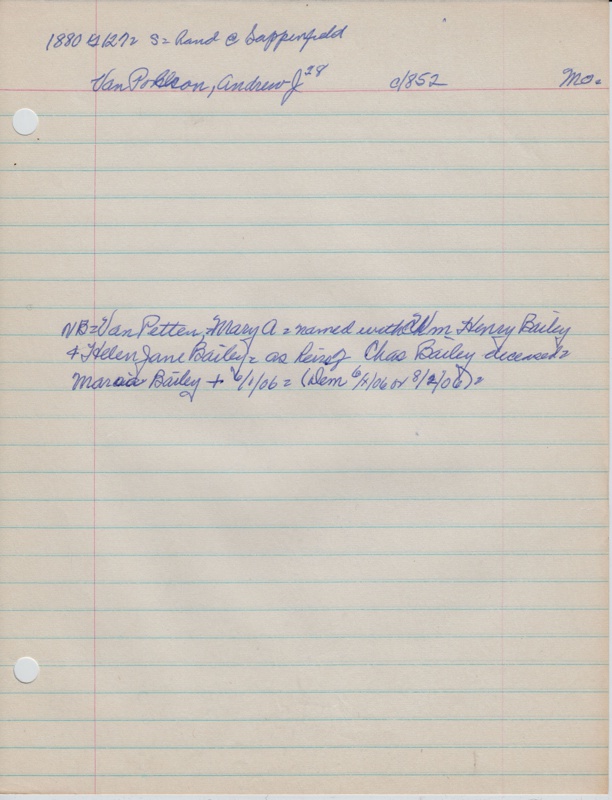 1880 = 127 = S = hand @ Sappenfield
Van Pohlson, Andrew J 28 c/852 Mo.
NB = Van Petten, Mary A = named with Wm Henry Bailey
& Helen Jane Bailey = as heirs of Chas Bailey deceased =
Maria Bailey + 6/1/06 = (Dem 6/1/06 or 8/2/06) =